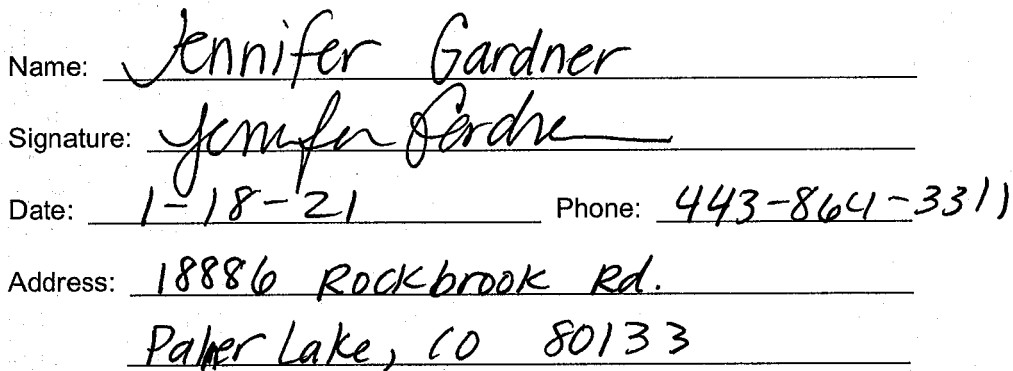 Name: Jennifer Gardner
Signature: Jennifer Gardner
Date: 1-18-21 Phone: 443-864-3311
Address: 18886 Rockbrook Rd.
Palmer Lake, CO 80133